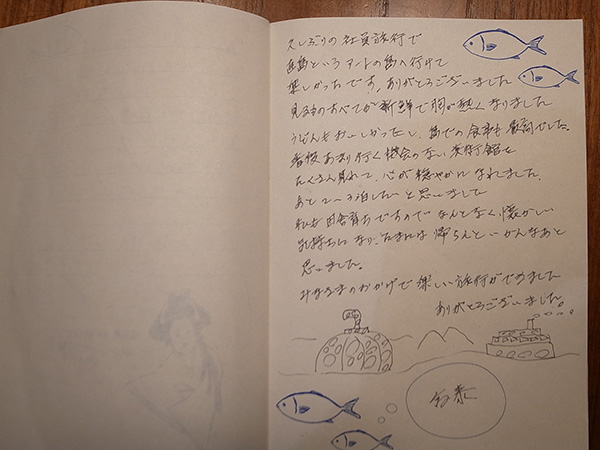 久しぶりの社員旅行で
直島というアートの島へ行けて
楽しかったです。ありがとうございました
見るものすべてが新鮮で胸が熱くなりました
うどんもおいしかったし、島での食事も最高でした。
普段あまり行く機会のない美術館を
たくさん見れて、心が穏やかになれました。
あと2〜3泊したいと思いました
私も田舎育ちですので なんとなく懐かしい
気持ちになり、たまには帰らんといかんなあと
思いました。
みなさまのおかげで楽しい旅行ができました
ありがとうございました。